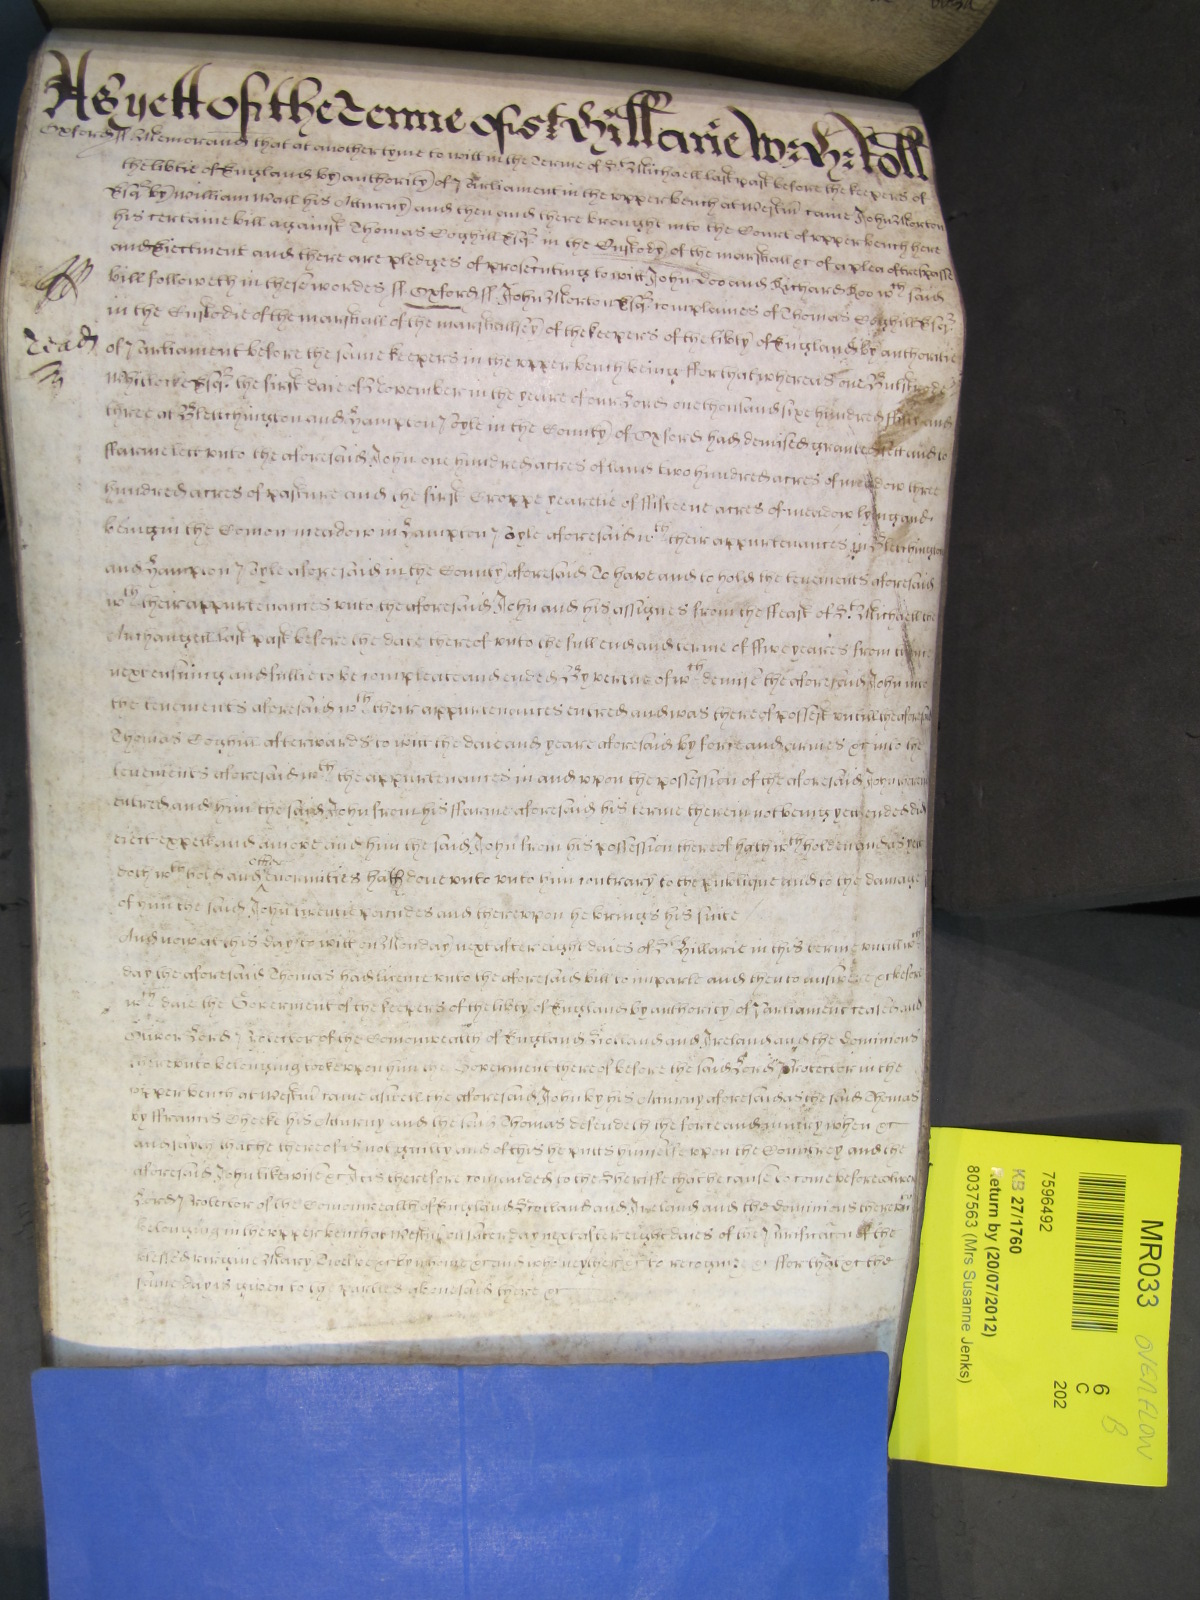 As yett of the Terme of st Hillarie Wr: Hr: Roll
Oxford ss Memorand that at another tyme to witt in the Terme of St Michaell last past before the keepers of
the libtie of England by authority of Parliament in the upper bench at Westmr came John Morton
Esqr by William Wall his Atturny and then and there brought into the Court of upper bench here
his certaine bill against Thomas Coghill Esqr in the Custody of the marshall &c of a plea of trespasse
and Eiectment and there are pledges of prosecuting to witt John Doo and Richard Roo wch said
bill followeth in these wordes ss Oxford ss John Morton Esqr complaines of Thomas Coghill Esqr
in the Custodie of the marshall of the marshalsey of the keepers of the libty of England by authoritie
of Parliament before the same keepers in the upper bench being ffor that whereas one Bulstrode
Whitlocke Esqr the first daie of November in the yeare of our Lord one thousand sixe hundred fiftie and
three at Bletchington and Hampton Poyle in the County of Oxford had demised granted sett and to
ffarme lett unto the aforesaid John one hundred acres of land two hundred acres of meadow three
hundred acres of pasture and the first Croppe yearelie of ffifteene acres of meadow lying and
being in the Comon meadow in Hampton Poyle aforesaid wth their appurtenances in Bletchington
and Hampton Poyle aforesaid in the County aforesaid To have and to hold the tenements aforesaid
wth their appurtenances unto the aforesaid John and his assignes from the ffeast of St Michaell the
Archangell last past before the date thereof unto the full end and terme of ffive yeares from thence
next ensuing and fullie to be compleate and ended By vertue of wch demise the aforesaid John into
the tenements aforesaid wth their appurtenances entred and was thereof possest untill the aforesaid
Thomas Coghill afterwards to witt the daie and yeare aforesaid by force and armes &c into the
tenements aforesaid wth the appurtenances in and upon the possession of the aforesaid John
entred and him the said John from his ffarme aforesaid his terme therein not being yett ended did
eiect expell and amove and him the said John from his possession thereof hath wthholden and as yett
doth wthhold and other enormities hath done unto unto him contrary to the publique and to the damage
of him the said John twentie poundes and thereupon he brings his suite
And now at this day to witt on Monday next after eight daies of St Hillarie in this terme untill wch
day the aforesaid Thomas had licence unto the aforesaid bill to imparle and then to answere &c before
wch daie the Goverment of the keepers of the libty of England by authority of Parliament ceased and
Oliver Lord Protector of the Comonwealth of England Scotland and Ireland and the Dominions
thereunto belonging tooke upon him the Goverment thereof before the said Lord Protector in the
upper bench at Westmr came aswell the aforesaid John by his Atturny aforesaid as the said Thomas
by ffrancis Cheeke his Atturny and the said Thomas defendeth the force and iniury when &c
and sayth that he thereof is not guilty and of this he putts himselfe upon the Countrey and the
aforesaid John likewise &c It is therefore comanded to the Sheriffe that he cause to come before Oliver
Lord Protector of the Comonwealth of England Scotland and Ireland and the dominions thereunto
belonging in the upper bench at Westmr on saterday next after eight daies of the Purificacon of the
blessed virgine Mary Twelve &c by whome &c and who neyther &c to recognize &c ffor that &c the
same day is given to the parties abovesaid there &c
MR033 OVERFLOW
6 B
C
202
7596492
KB 27/1760
Return by (20/07/2012)
8037563 (Mrs Susanne Jenks)